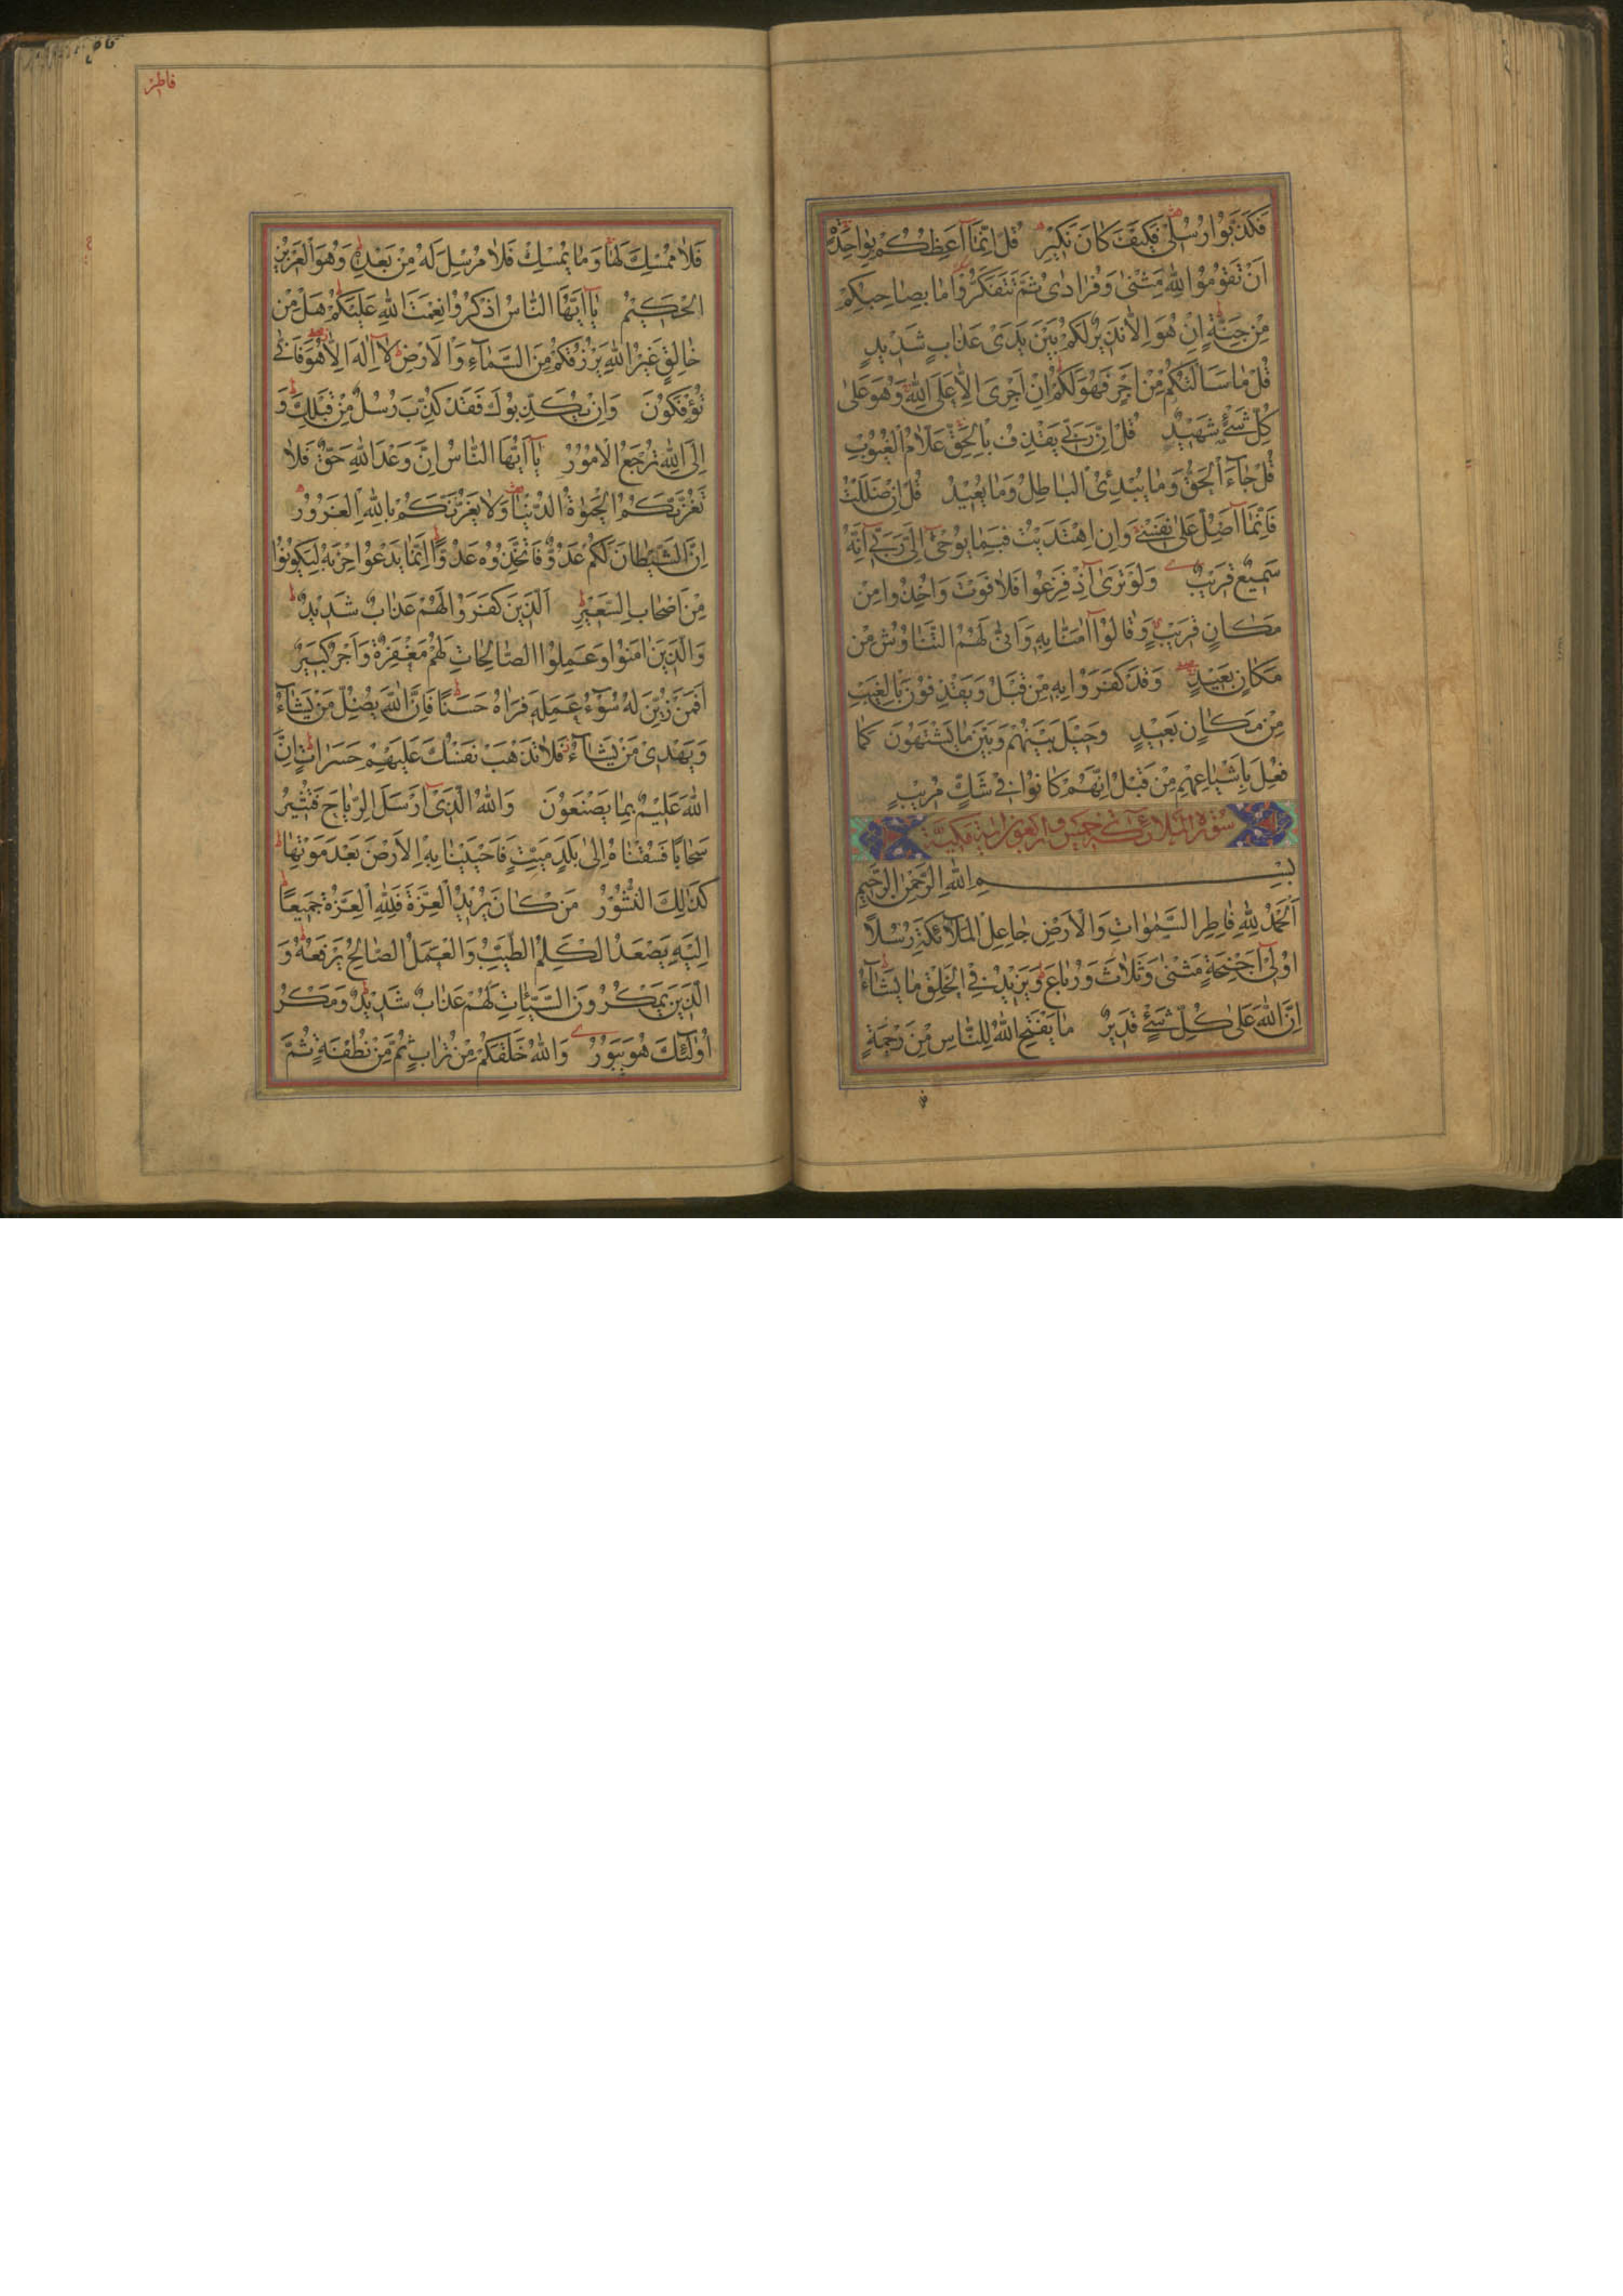 فَكَذَّبُوا رُسُلِى فَكَيْفَ كَانَ نَكِيرِ قُلْ اِنَّمَا اَعِظُكُمْ بِوَاحِدَةٍ
اَنْ تَقُومُوا لِلّٰهِ مَثْنٰى وَفُرَادٰى ثُمَّ تَتَفَكَّرُوا مَا بِصَاحِبِكُمْ
مِنْ جِنَّةٍ اِنْ هُوَ اِلَّا نَذِيرٌ لَكُمْ بَيْنَ يَدَىْ عَذَابٍ شَدِيدٍ
قُلْ مَا سَاَلْتُكُمْ مِنْ اَجْرٍ فَهُوَ لَكُمْ اِنْ اَجْرِىَ اِلَّا عَلَى اللّٰهِ وَهُوَ عَلٰى
كُلِّ شَىْءٍ شَهِيدٌ قُلْ اِنَّ رَبِّى يَقْذِفُ بِالْحَقِّ عَلَّامُ الْغُيُوبِ
قُلْ جَاءَ الْحَقُّ وَمَا يُبْدِئُ الْبَاطِلُ وَمَا يُعِيدُ قُلْ اِنْ ضَلَلْتُ
فَاِنَّمَا اَضِلُّ عَلٰى نَفْسِى وَاِنِ اهْتَدَيْتُ فَبِمَا يُوحِى اِلَىَّ رَبِّى اِنَّهُ
سَمِيعٌ قَرِيبٌ وَلَوْ تَرٰى اِذْ فَزِعُوا فَلَا فَوْتَ وَاُخِذُوا مِنْ
مَكَانٍ قَرِيبٍ وَقَالُوا اٰمَنَّا بِهِ وَاَنّٰى لَهُمُ التَّنَاوُشُ مِنْ
مَكَانٍ بَعِيدٍ وَقَدْ كَفَرُوا بِهِ مِنْ قَبْلُ وَيَقْذِفُونَ بِالْغَيْبِ
مِنْ مَكَانٍ بَعِيدٍ وَحِيلَ بَيْنَهُمْ وَبَيْنَ مَا يَشْتَهُونَ كَمَا
فُعِلَ بِاَشْيَاعِهِمْ مِنْ قَبْلُ اِنَّهُمْ كَانُوا فِى شَكٍّ مُرِيبٍ
سورة الملائكة خمس واربعون اية مكية
بِسْمِ اللّٰهِ الرَّحْمٰنِ الرَّحِيمِ
اَلْحَمْدُ لِلّٰهِ فَاطِرِ السَّمٰوَاتِ وَالْاَرْضِ جَاعِلِ الْمَلَائِكَةِ رُسُلًا
اُولِى اَجْنِحَةٍ مَثْنٰى وَثُلَاثَ وَرُبَاعَ يَزِيدُ فِى الْخَلْقِ مَا يَشَاءُ
اِنَّ اللّٰهَ عَلٰى كُلِّ شَىْءٍ قَدِيرٌ مَا يَفْتَحِ اللّٰهُ لِلنَّاسِ مِنْ رَحْمَةٍ
فاطر
فَلَا مُمْسِكَ لَهَا وَمَا يُمْسِكْ فَلَا مُرْسِلَ لَهُ مِنْ بَعْدِهِ وَهُوَ الْعَزِيزُ
الْحَكِيمُ يَا اَيُّهَا النَّاسُ اذْكُرُوا نِعْمَتَ اللّٰهِ عَلَيْكُمْ هَلْ مِنْ
خَالِقٍ غَيْرُ اللّٰهِ يَرْزُقُكُمْ مِنَ السَّمَاءِ وَالْاَرْضِ لَا اِلٰهَ اِلَّا هُوَ فَاَنّٰى
تُؤْفَكُونَ وَاِنْ يُكَذِّبُوكَ فَقَدْ كُذِّبَ رُسُلٌ مِنْ قَبْلِكَ وَ
اِلَى اللّٰهِ تُرْجَعُ الْاُمُورُ يَا اَيُّهَا النَّاسُ اِنَّ وَعْدَ اللّٰهِ حَقٌّ فَلَا
تَغُرَّنَّكُمُ الْحَيٰوةُ الدُّنْيَا وَلَا يَغُرَّنَّكُمْ بِاللّٰهِ الْغَرُورُ
اِنَّ الشَّيْطَانَ لَكُمْ عَدُوٌّ فَاتَّخِذُوهُ عَدُوًّا اِنَّمَا يَدْعُوا حِزْبَهُ لِيَكُونُوا
مِنْ اَصْحَابِ السَّعِيرِ اَلَّذِينَ كَفَرُوا لَهُمْ عَذَابٌ شَدِيدٌ
وَالَّذِينَ اٰمَنُوا وَعَمِلُوا الصَّالِحَاتِ لَهُمْ مَغْفِرَةٌ وَاَجْرٌ كَبِيرٌ
اَفَمَنْ زُيِّنَ لَهُ سُوءُ عَمَلِهِ فَرَاٰهُ حَسَنًا فَاِنَّ اللّٰهَ يُضِلُّ مَنْ يَشَاءُ
وَيَهْدِى مَنْ يَشَاءُ فَلَا تَذْهَبْ نَفْسُكَ عَلَيْهِمْ حَسَرَاتٍ اِنَّ
اللّٰهَ عَلِيمٌ بِمَا يَصْنَعُونَ وَاللّٰهُ الَّذِى اَرْسَلَ الرِّيَاحَ فَتُثِيرُ
سَحَابًا فَسُقْنَاهُ اِلٰى بَلَدٍ مَيِّتٍ فَاَحْيَيْنَا بِهِ الْاَرْضَ بَعْدَ مَوْتِهَا
كَذٰلِكَ النُّشُورُ مَنْ كَانَ يُرِيدُ الْعِزَّةَ فَلِلّٰهِ الْعِزَّةُ جَمِيعًا
اِلَيْهِ يَصْعَدُ الْكَلِمُ الطَّيِّبُ وَالْعَمَلُ الصَّالِحُ يَرْفَعُهُ وَ
الَّذِينَ يَمْكُرُونَ السَّيِّئَاتِ لَهُمْ عَذَابٌ شَدِيدٌ وَمَكْرُ
اُولٰئِكَ هُوَ يَبُورُ وَاللّٰهُ خَلَقَكُمْ مِنْ تُرَابٍ ثُمَّ مِنْ نُطْفَةٍ ثُمَّ